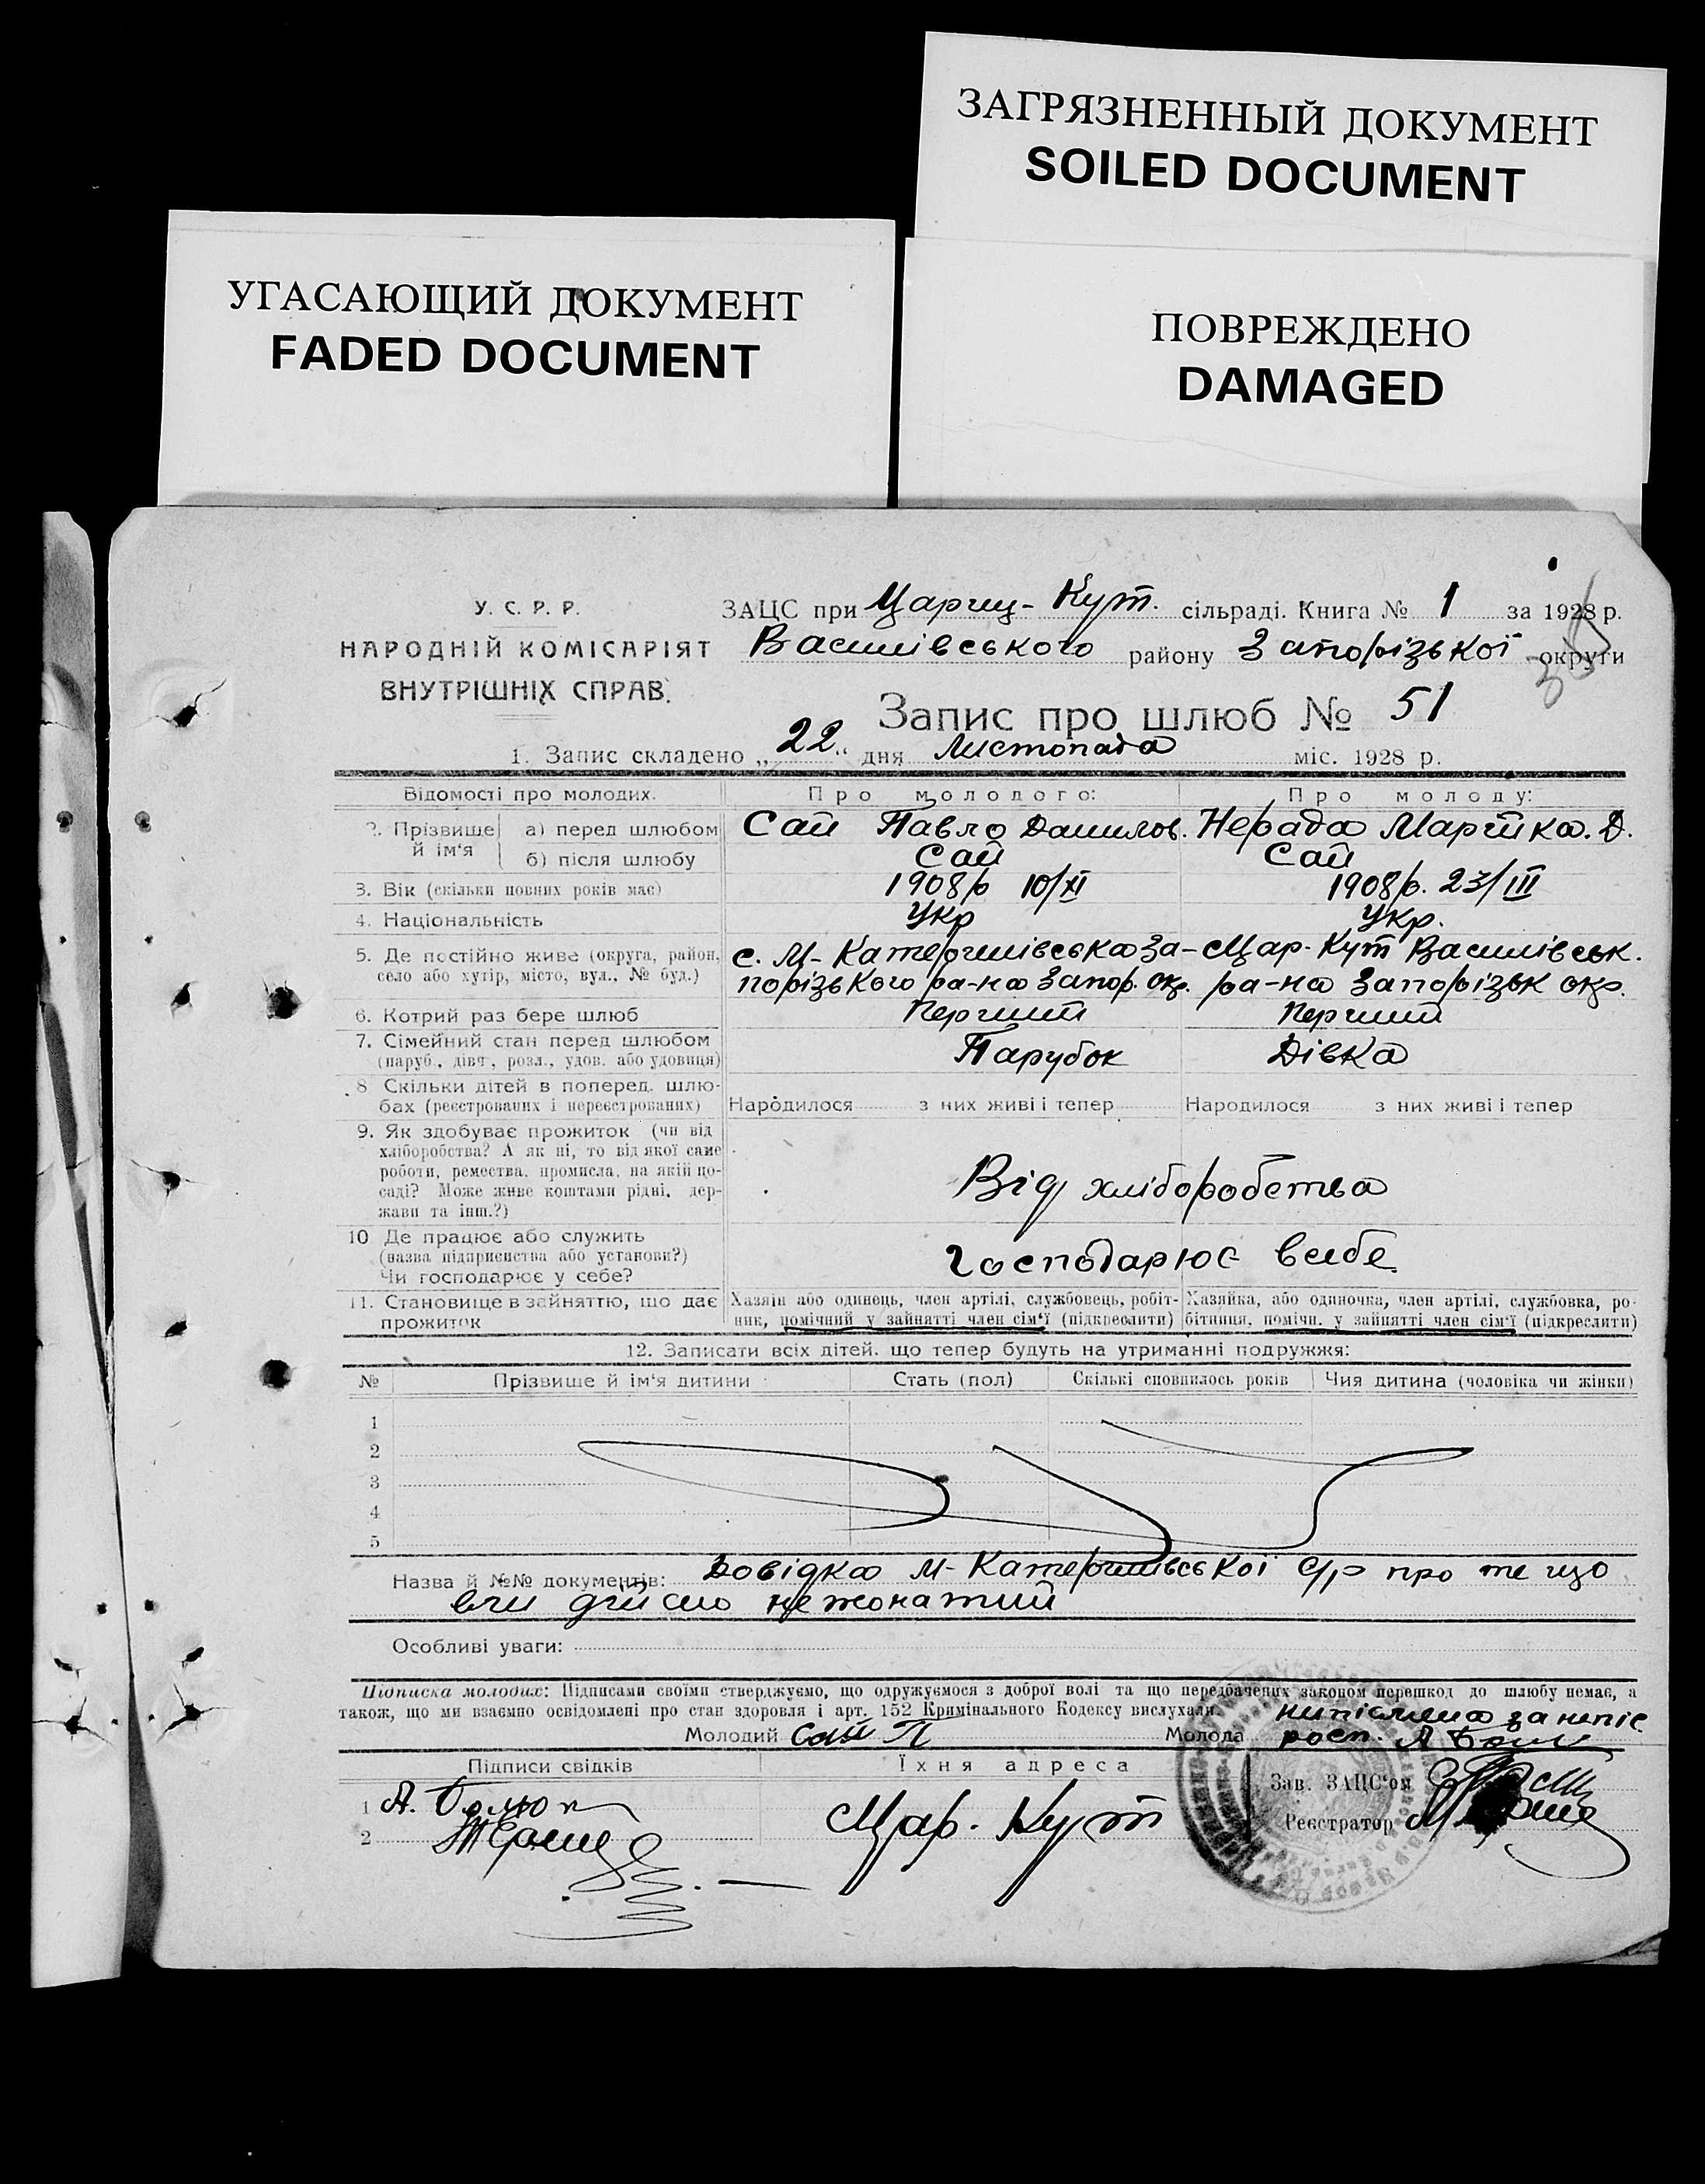 ЗАГРЯЗНЕННЫЙ ДОКУМЕНТ
SOILED DOCUMENT
УГАСАЮЩИЙ ДОКУМЕНТ
FADED DOCUMENT
ПОВРЕЖДЕНО
DAMAGED
У. С. Р. Р.
НАРОДНІЙ КОМІСАРІЯТ
ВНУТРІШНІХ СПРАВ.
ЗАЦС при Цариц-Кут. сільраді. Книга № 1 за 1928 р.
Василівського району Запорізької округи
Запис про шлюб № 51
1. Запис складено „22“ дня Листопада міс. 1928 р.
Відомості про молодих. Про молодого: Про молоду:
2. Прізвище й ім‘я а) перед шлюбом Сай Павло Данилов. Нерада Марійка. Д.
б) після шлюбу Сай Сай
3. Вік (скільки повних років має) 1908 р 10/XI 1908 р. 23/III
4. Національність Укр Укр.
5. Де постійно живе (округа, район, с. М-Катеринівська За- Цар-Кут Василівськ.
село або хутір, місто, вул., № буд.) порізького ра-на Запор. окр. ра-на Запорізьк окр.
6. Котрий раз бере шлюб Перший Перший
7. Сімейний стан перед шлюбом
(паруб., дівч., розл., удов. або удовиця) Парубок Дівка
8 Скільки дітей в поперед. шлю-
бах (реєстрованих і нереєстрованих) Народилося з них живі і тепер Народилося з них живі і тепер
9. Як здобуває прожиток (чи від
хліборобства? А як ні, то від якої саме
роботи, ремества, промисла, на якій по-
саді? Може живе коштами рідні, дер-
жави та інш.?)
Від хліборобства
10 Де працює або служить
(назва підприємства або установи?)
Чи господарює у себе?
Господарює в себе
11. Становище в зайняттю, що дає Хазяїн або одинець, член артілі, службовець, робіт- Хазяйка, або одиночка, член артілі, службовка, ро-
прожиток ник, помічний у зайнятті член сім‘ї (підкреслити) бітниця, помічн. у зайнятті член сім‘ї (підкреслити)
12. Записати всіх дітей. що тепер будуть на утриманні подружжя:
№ Прізвище й ім‘я дитини Стать (пол) Скількі сповнилось років Чия дитина (чоловіка чи жінки)
1
2
3
4
5
Назва й №№ документів: Довідка М-Катеринівської с/р про те що
дійсно нежонатий
Особливі уваги:
Підписка молодих: Підписами своїми стверджуємо, що одружуємося з доброї волі та що передбачених законом перешкод до шлюбу немає, а
також, що ми взаємно освідомлені про стан здоровля і арт. 152 Кримінального Кодексу вислухали.
Молодий Сай П Молода неписьмена за
росп.
Підписи свідків Їхня адреса Зав. ЗАЦС‘ом
1 А.
2 Цар. Кут Реєстратор